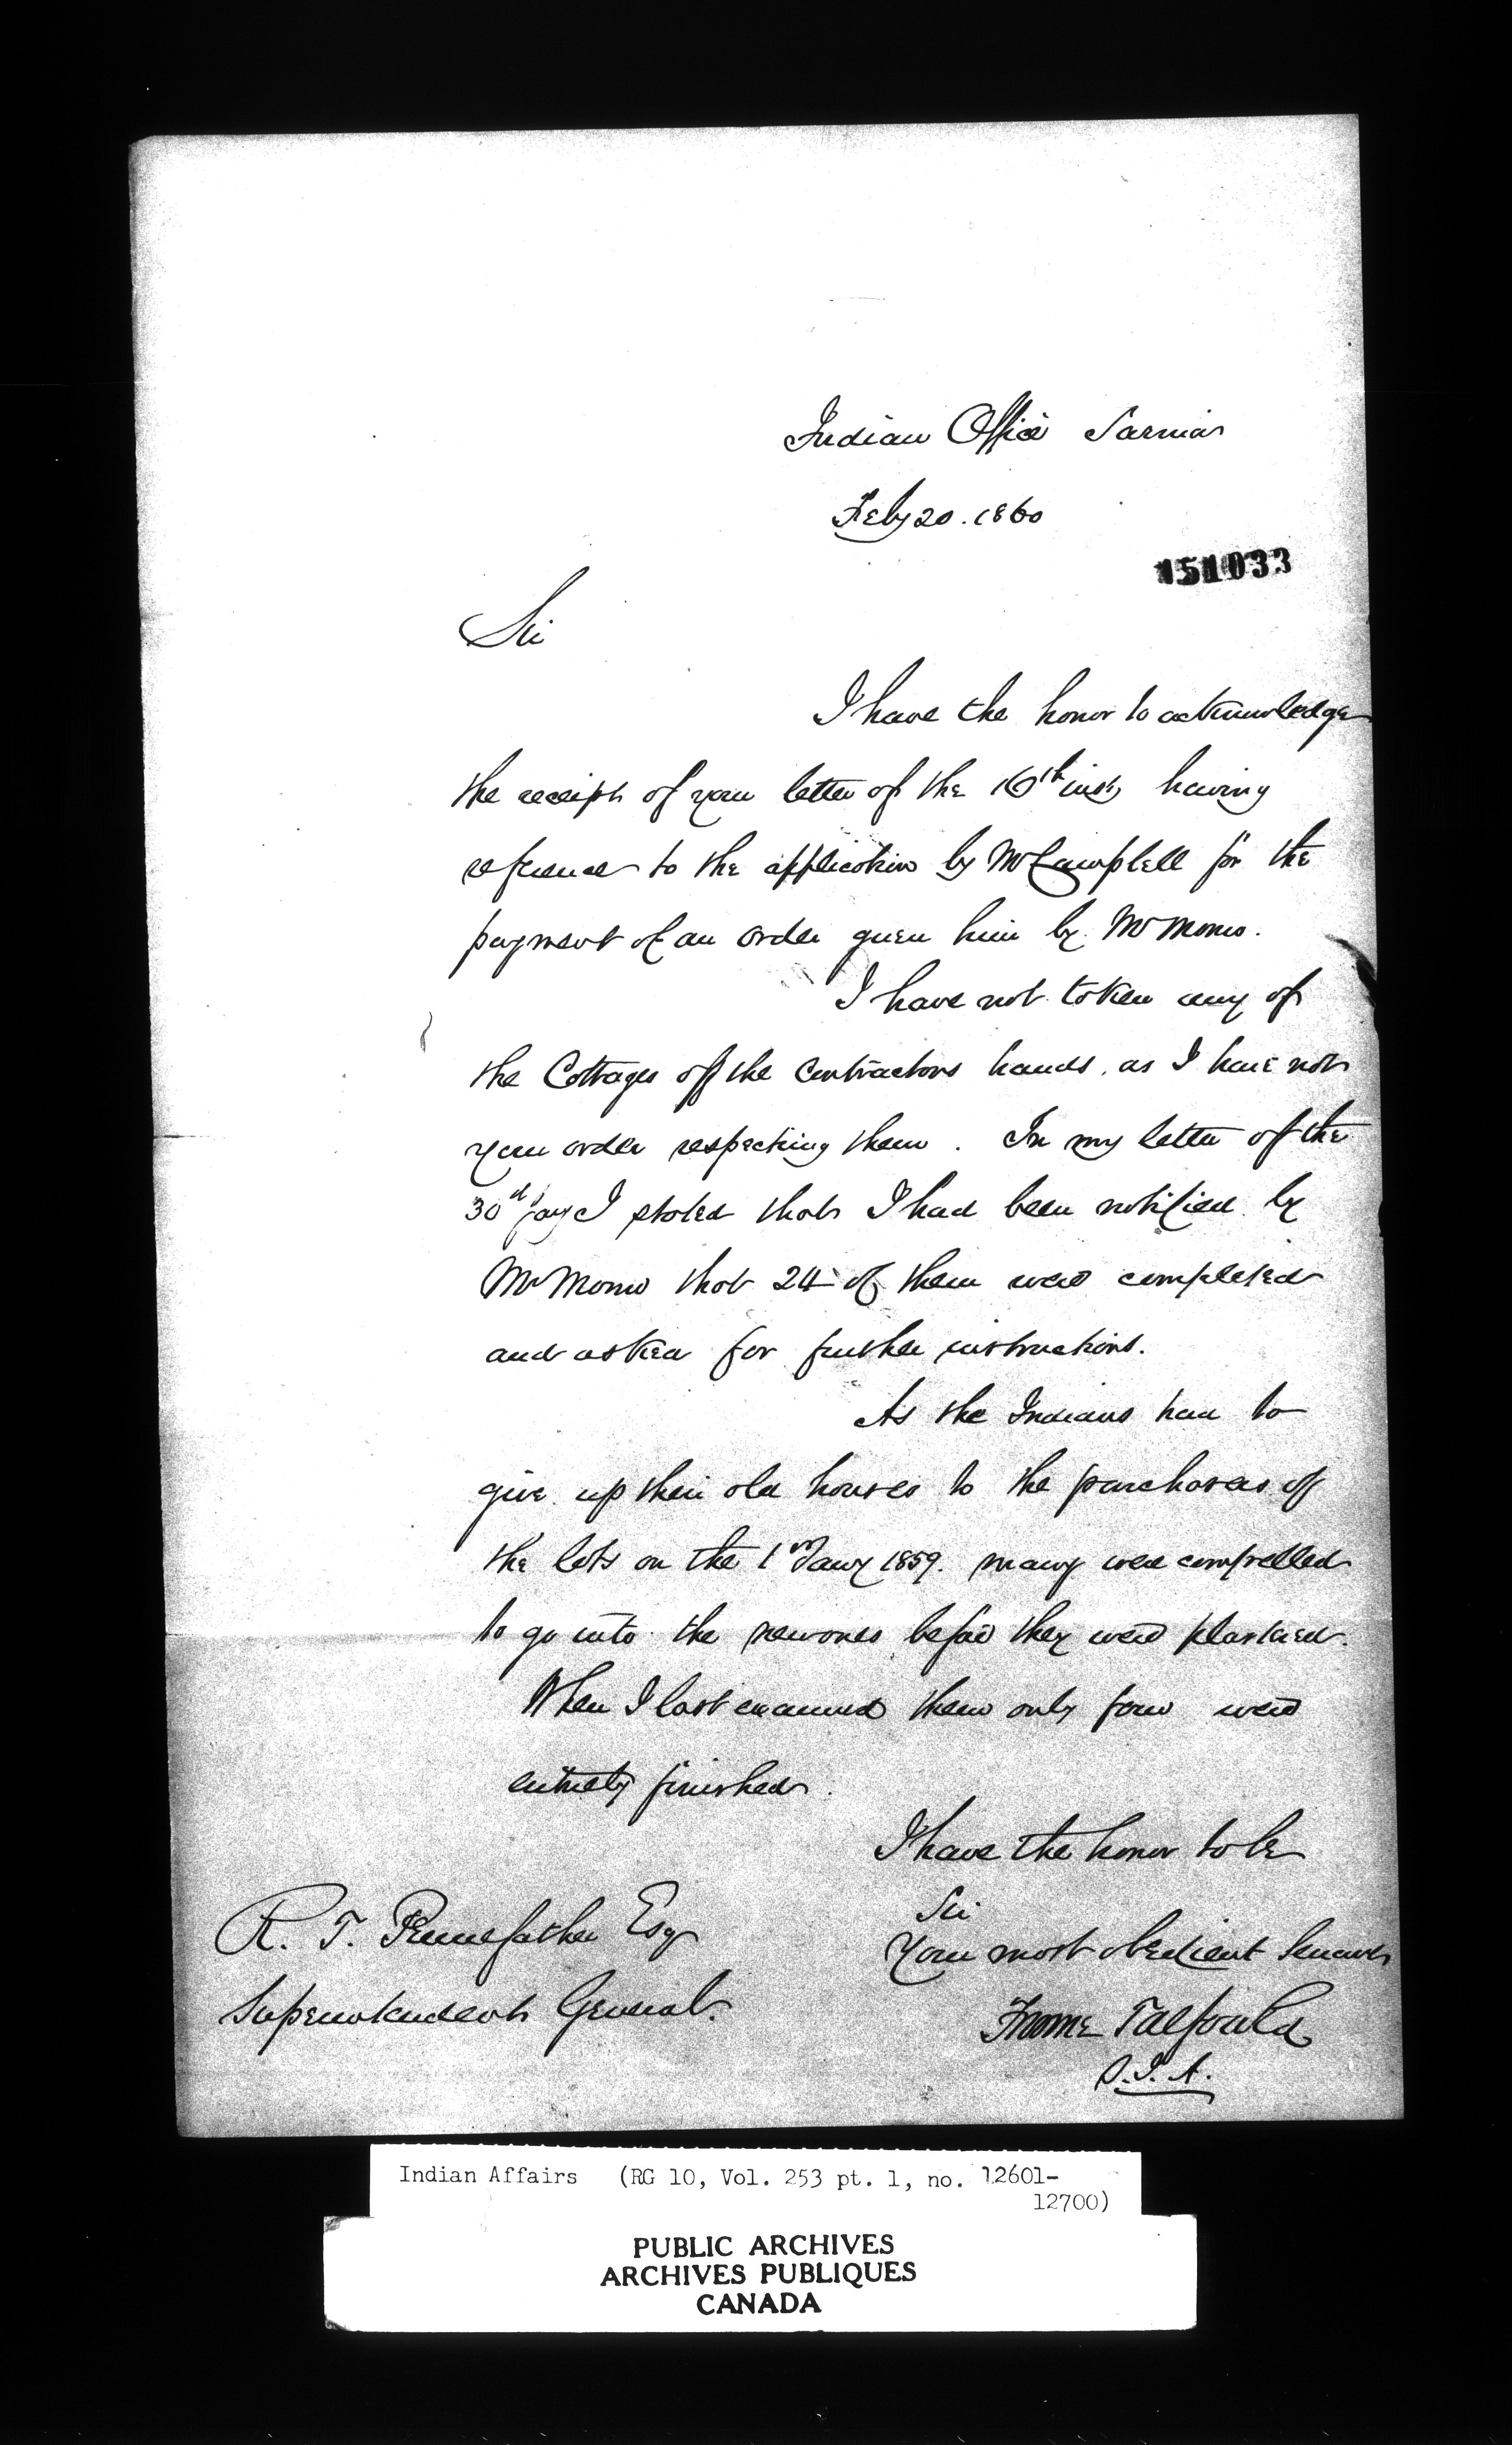 Indian Office Sarnia
Feby 20. 1860
151033
Sir
I have the honor to acknowledge
the receipt of your letter of the 16th inst, having
reference to the application by Mr Campbell for the
payment of an order given him by Mr Monro.
I have not taken any of
the Cottages off the Contractors hands, as I have not
your order respecting them. In my letter of the
30th Jany I stated that I had been notified by
Mr Monro that 24 of them were completed
and asked for further instructions.
As the Indians had to
give up their old houses to the purchasers of
the lots on the 1st Jany 1859. many were compelled
to go into the new ones before they were plastered.
When I last examined them only four were
entirely finished.
I have the honor to be
Sir
Your most obedient Servant
Froome Talfourd
S.I.A.
R. T. Pennefather Esq
Superintendent General.
Indian Affairs (RG 10, Vol. 253 pt. 1, no. 12601-
12700)
PUBLIC ARCHIVES
ARCHIVES PUBLIQUES
CANADA